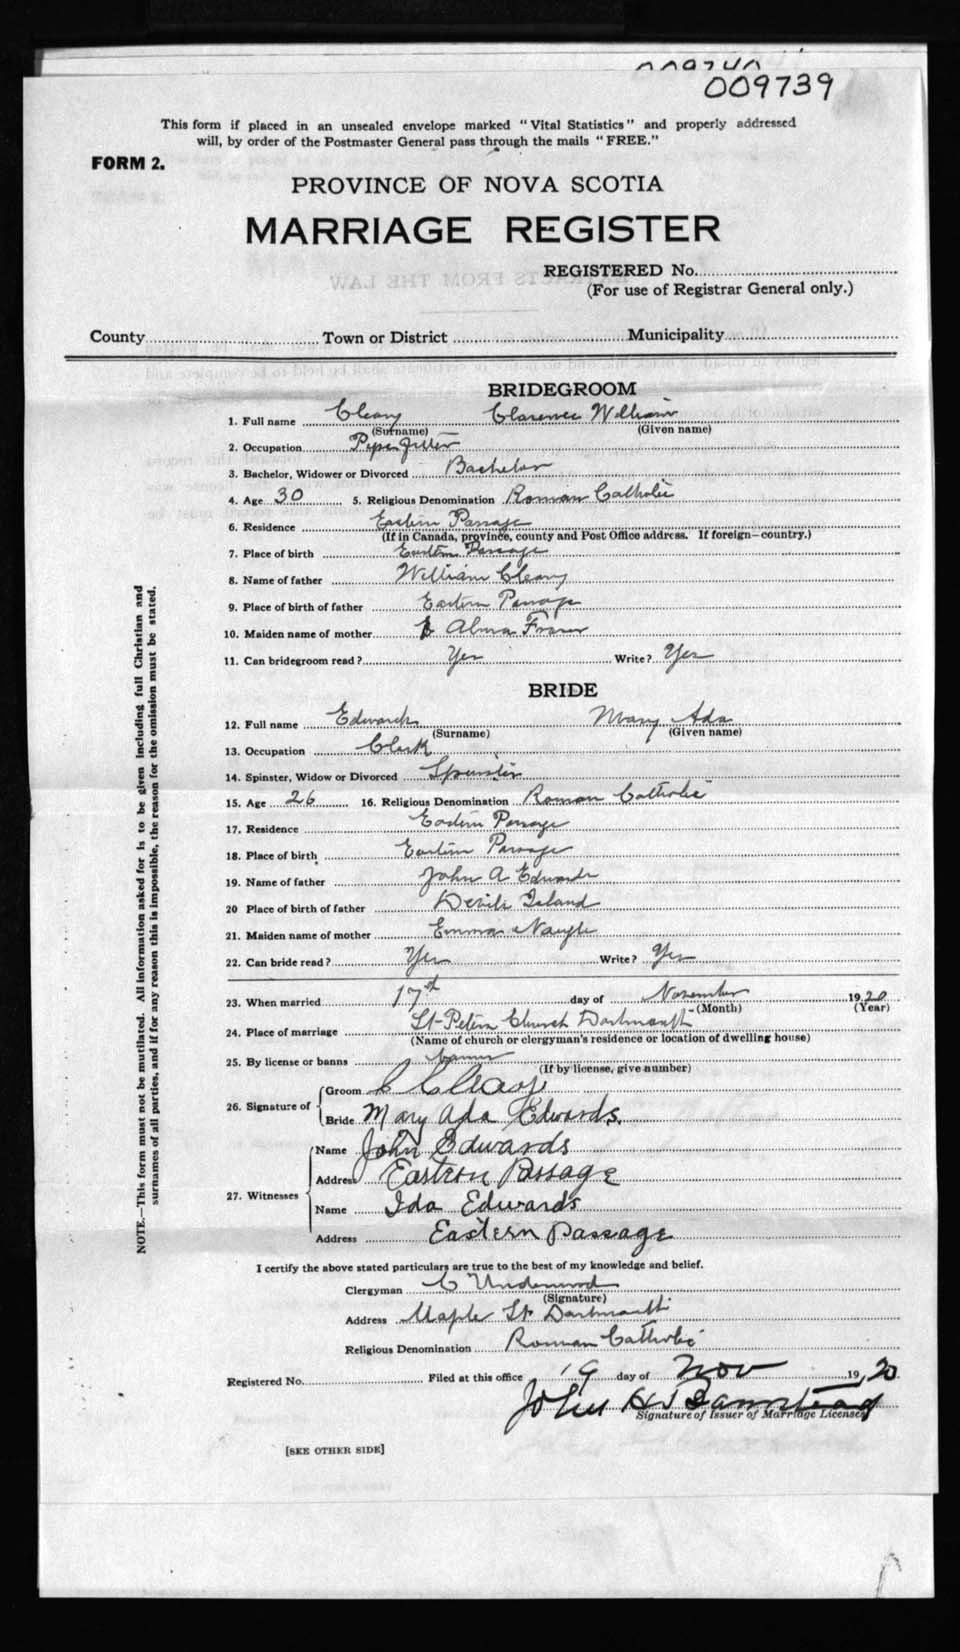 009740
009739
This form if placed in an unsealed envelope marked "Vital Statistics" and properly addressed
will, by order of the Postmaster General pass through the mails "FREE."
FORM 2.
PROVINCE OF NOVA SCOTIA
MARRIAGE REGISTER
REGISTERED No.
(For use of Registrar General only.)
County Town or District Municipality
BRIDEGROOM
1. Full name Cleary Clarence William
(Surname) (Given name)
2. Occupation Pipe fitter
3. Bachelor, Widower or Divorced Bachelor
4. Age 30 5. Religious Denomination Roman Catholic
6. Residence Eastern Passage
(If in Canada, province, county and Post Office address. If foreign—country.)
7. Place of birth Eastern Passage
8. Name of father William Cleary
9. Place of birth of father Eastern Passage
10. Maiden name of mother Alma Fraser
11. Can bridegroom read? Yes Write? Yes
BRIDE
12. Full name Edwards Mary Ada
(Surname) (Given name)
13. Occupation Clerk
14. Spinster, Widow or Divorced Spinster
15. Age 26 16. Religious Denomination Roman Catholic
17. Residence Eastern Passage
18. Place of birth Eastern Passage
19. Name of father John A Edwards
20 Place of birth of father Devils Island
21. Maiden name of mother Emma Naugle
22. Can bride read? Yes Write? Yes
23. When married 17th day of November 1920
(Month) (Year)
24. Place of marriage St-Peters Church Dartmouth
(Name of church or clergyman's residence or location of dwelling house)
25. By license or banns banns
(If by license, give number)
26. Signature of Groom C Cleary
Bride Mary Ada Edwards.
27. Witnesses Name John Edwards
Address Eastern Passage
Name Ida Edwards
Address Eastern Passage
I certify the above stated particulars are true to the best of my knowledge and belief.
Clergyman C Underwood
(Signature)
Address Maple St Dartmouth
Religious Denomination Roman Catholic
Registered No. Filed at this office 19 day of Nov 1920
John H S
Signature of Issuer of Marriage Licenses
[SEE OTHER SIDE]
NOTE.—This form must not be mutilated. All information asked for is to be given including full Christian and
surnames of all parties, and if for any reason this is impossible, the reason for the omission must be stated.